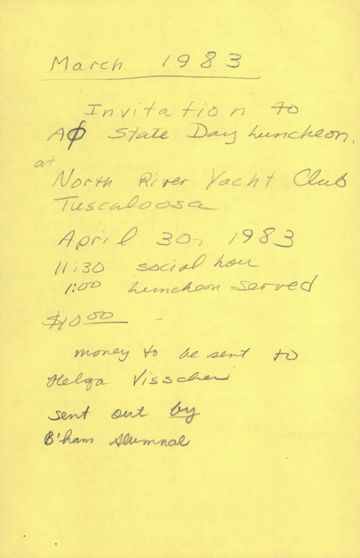 March 1983
Invitation to
AΦ State Day Luncheon.
at
North River Yacht Club
Tuscaloosa
April 30, 1983
11:30 social hour
1:00 Luncheon served
$10.00
money to be sent to
Helga Visscher
sent out by
B'ham Alumnae